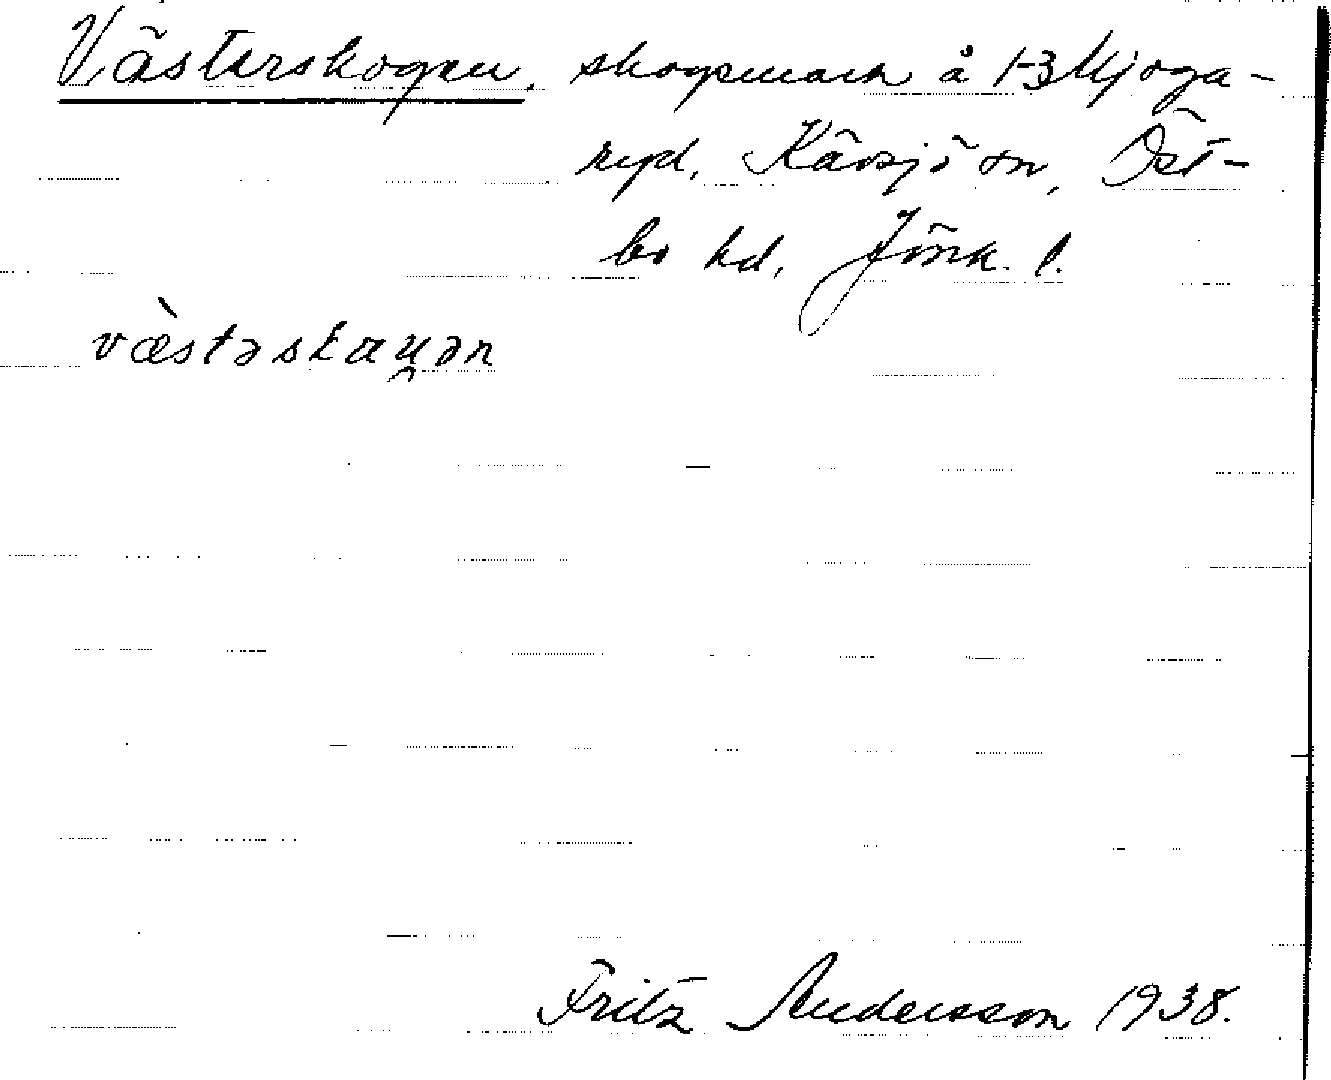 Västerskogen, skogsmark å 1-3 Mjoga-
ryd, Kävsjö sn, Öst-
bo hd, Jönk. l.
væ̀stəskau̯ən
Fritz Andersson 1938.